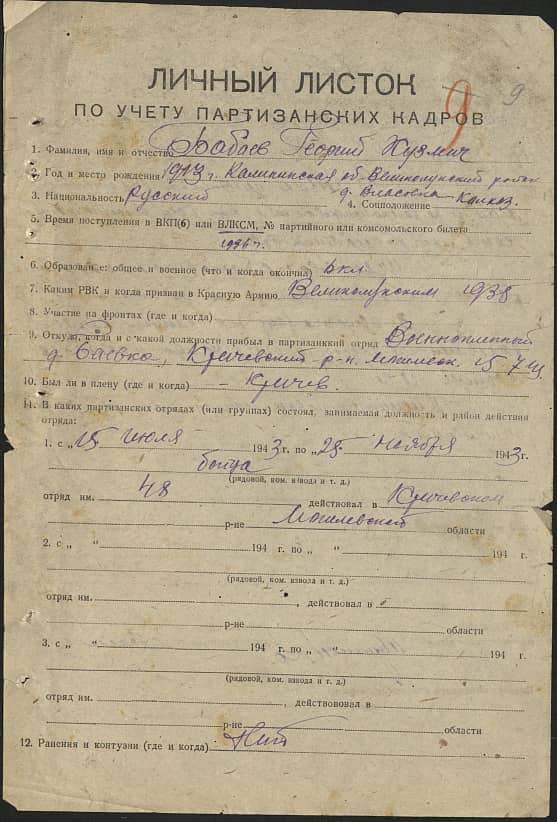 ЛИЧНЫЙ ЛИСТОК
9 9
ПО УЧЕТУ ПАРТИЗАНСКИХ КАДРОВ
1. Фамилия, имя и отчество Бабаев Георгий Кузмич
2. Год и место рождения 1913 г. Калининская об. Великолукский район
д. Власовка Колхоз.
3. Национальность Русский 4. Соцположение
5. Время поступления в ВКП(б) или ВЛКСМ, № партийного или комсомольского билета
1936 г.
6. Образование: общее и военное (что и когда окончил) 6 кл.
7. Каким РВК и когда призван в Красную Армию Великолукским 1938
8. Участие на фронтах (где и когда)
9. Откуда, когда и с какой должности прибыл в партизанский отряд Военнопленный
д. Баевка, Кричевский р-н. Могилевск. 15 7
10. Был ли в плену (где и когда) – Кричев.
11. В каких партизанских отрядах (или группах) состоял, занимаемая должность и район действия
отряда:
1. с „15 июля 1943 г. по „25 ноября 1943 г.
бойца
(рядовой, ком. взвода и т. д.)
отряд им. 48 действовал в Кричевском
р-не Могилевской области
2. с „ “ 194 г. по „ “ 194 г.
(рядовой, ком. взвода и т. д.)
отряд им. , действовал в
р-не области
3. с „ “ 194 г. по „ “ 194 г.
(рядовой, ком. взвода и т. д.)
отряд им. , действововал в
р-не области
12. Ранения и контузии (где и когда) Нит